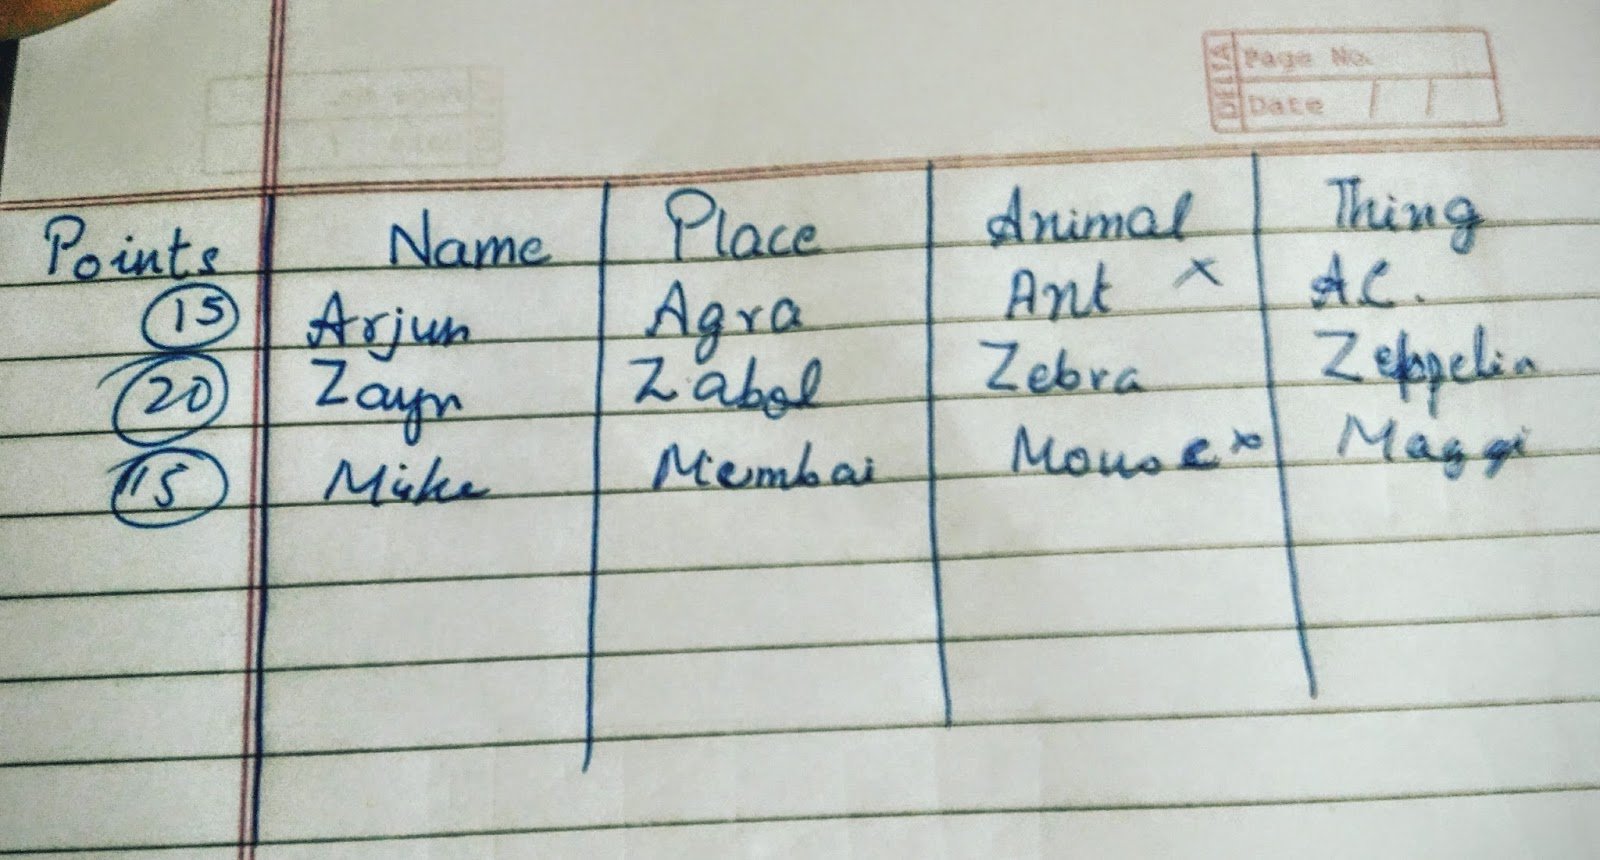 DELTA Page No.
Date / /
Points Name Place Animal Thing
15 Arjun Agra Ant x A.C.
20 Zayn Zabol Zebra Zeppelin
15 Mike Mumbai Mouse x Maggi